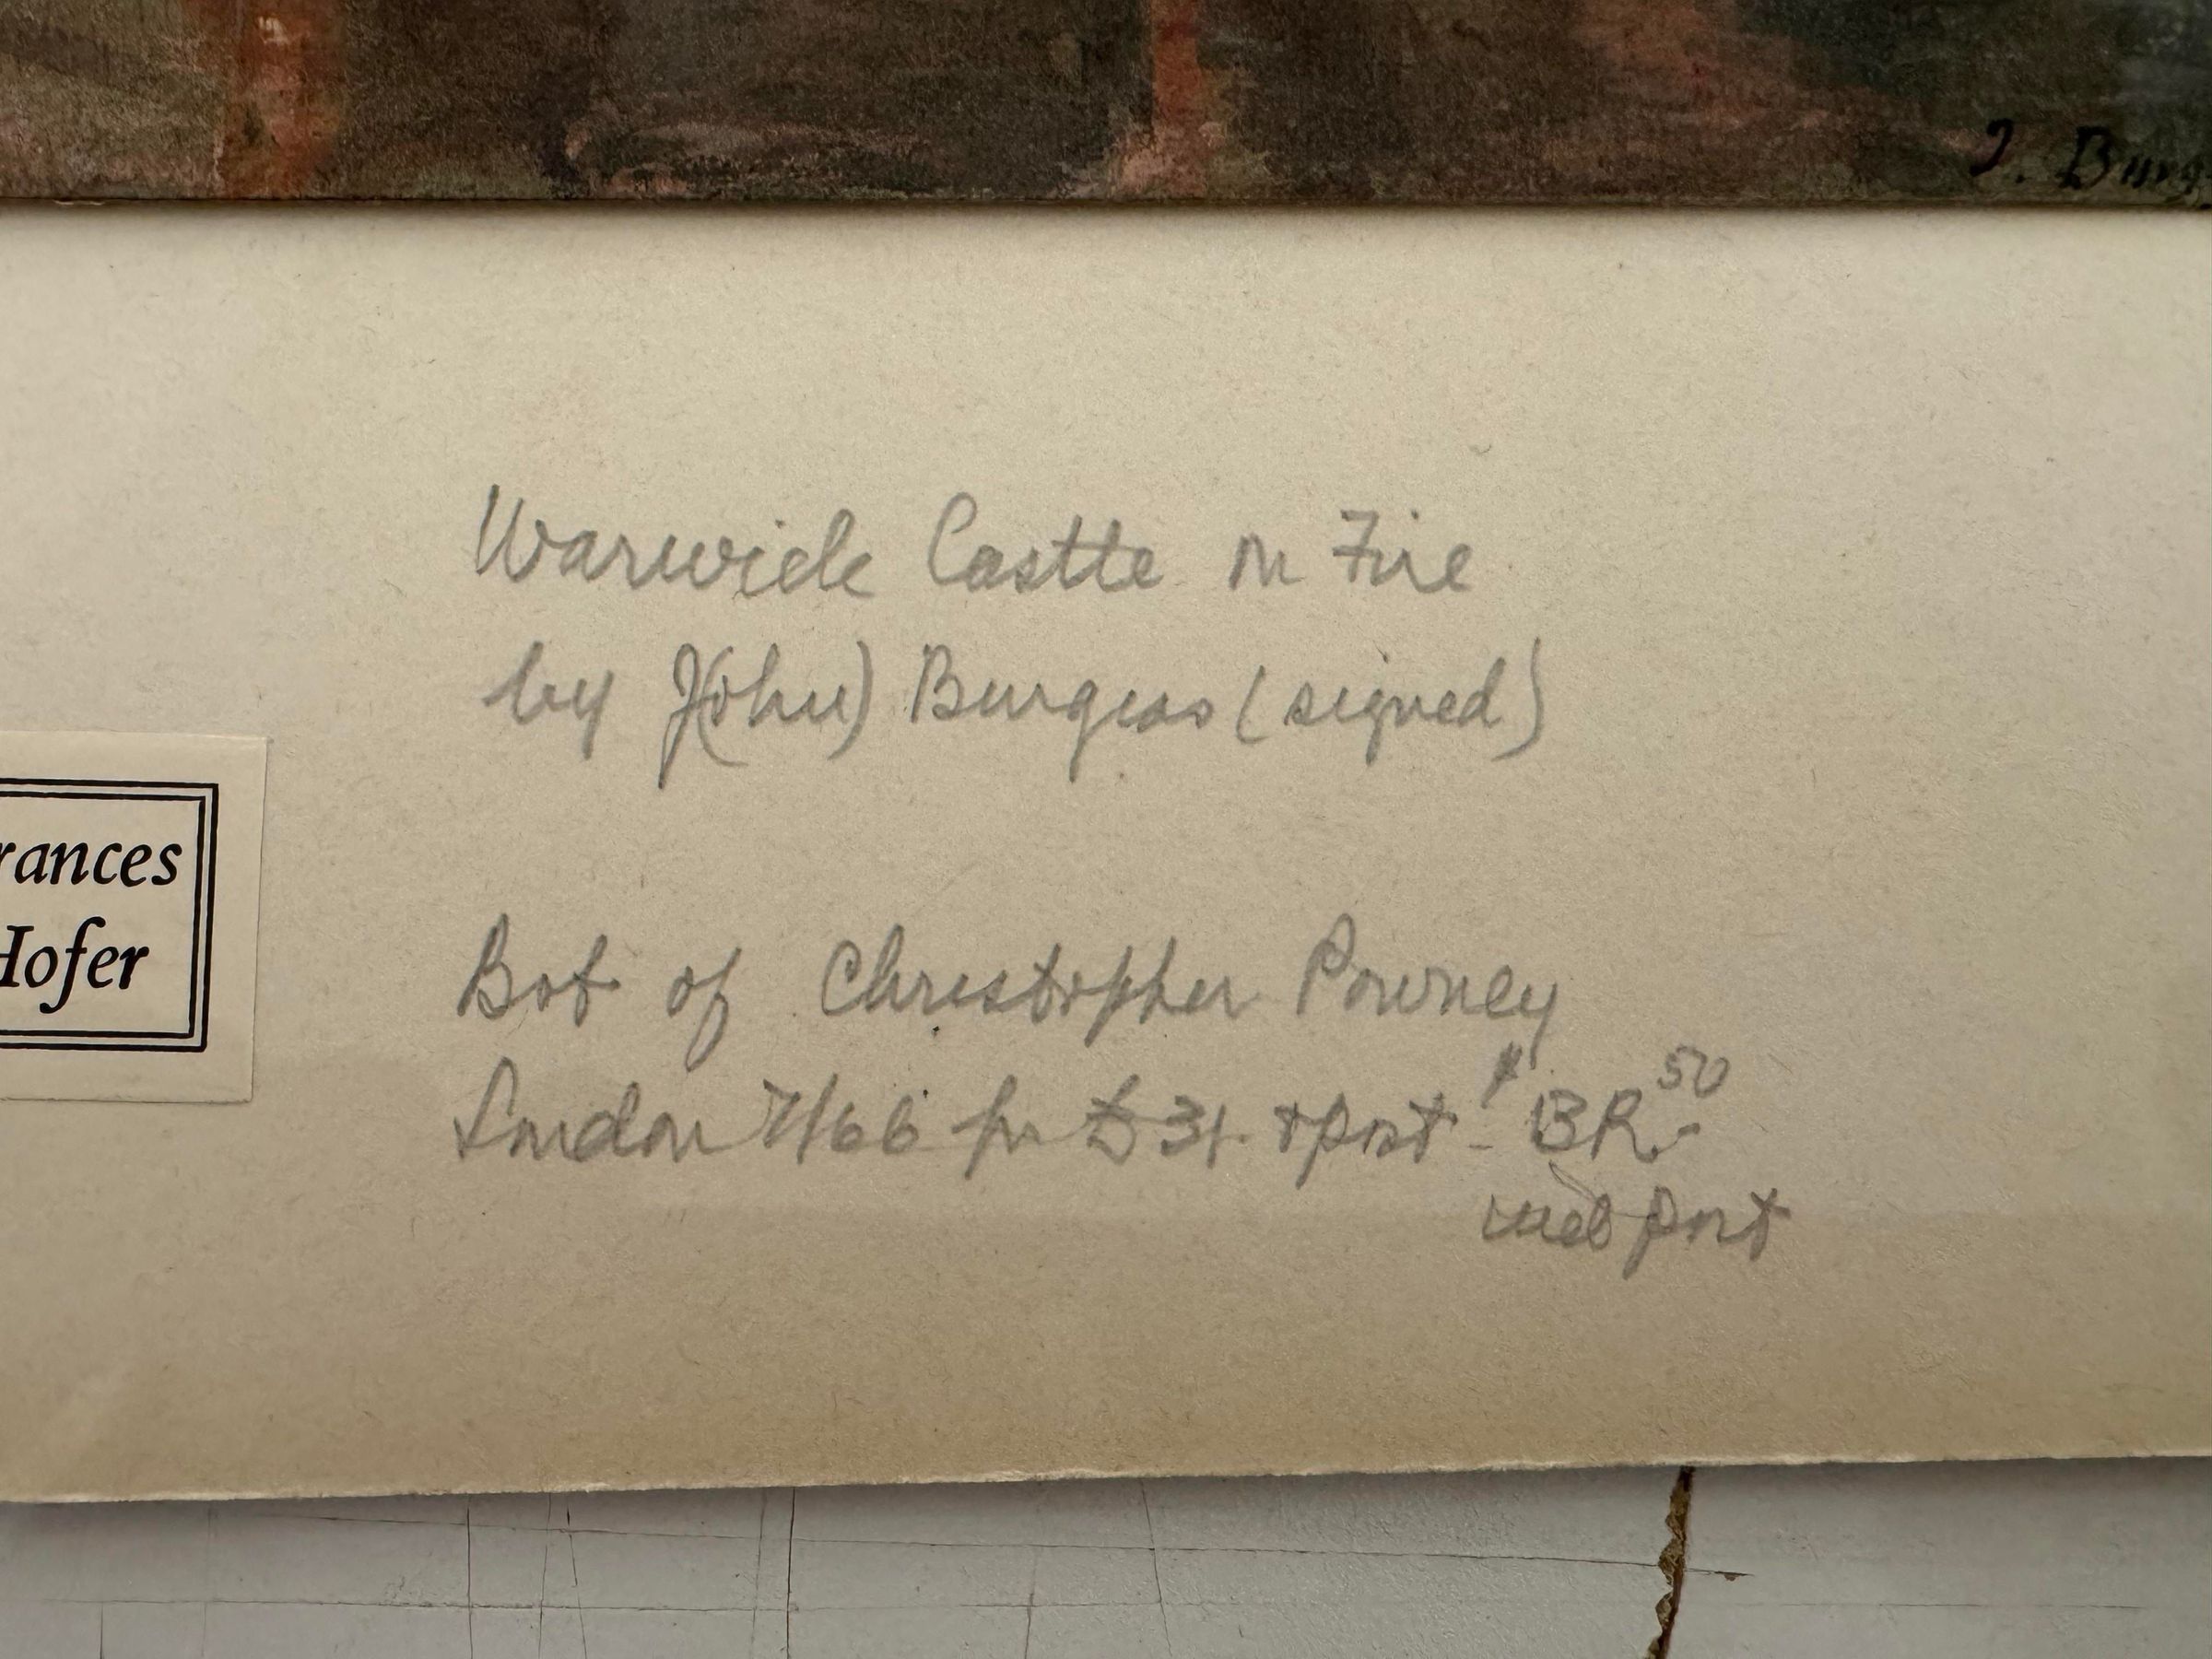 J. Burg
Warwick Castle on Fire
by J(ohn) Burgess (signed)
rances
Hofer
Bot of Christopher Powney
London 7/66 for £31. + post - $ BR.50
incl post